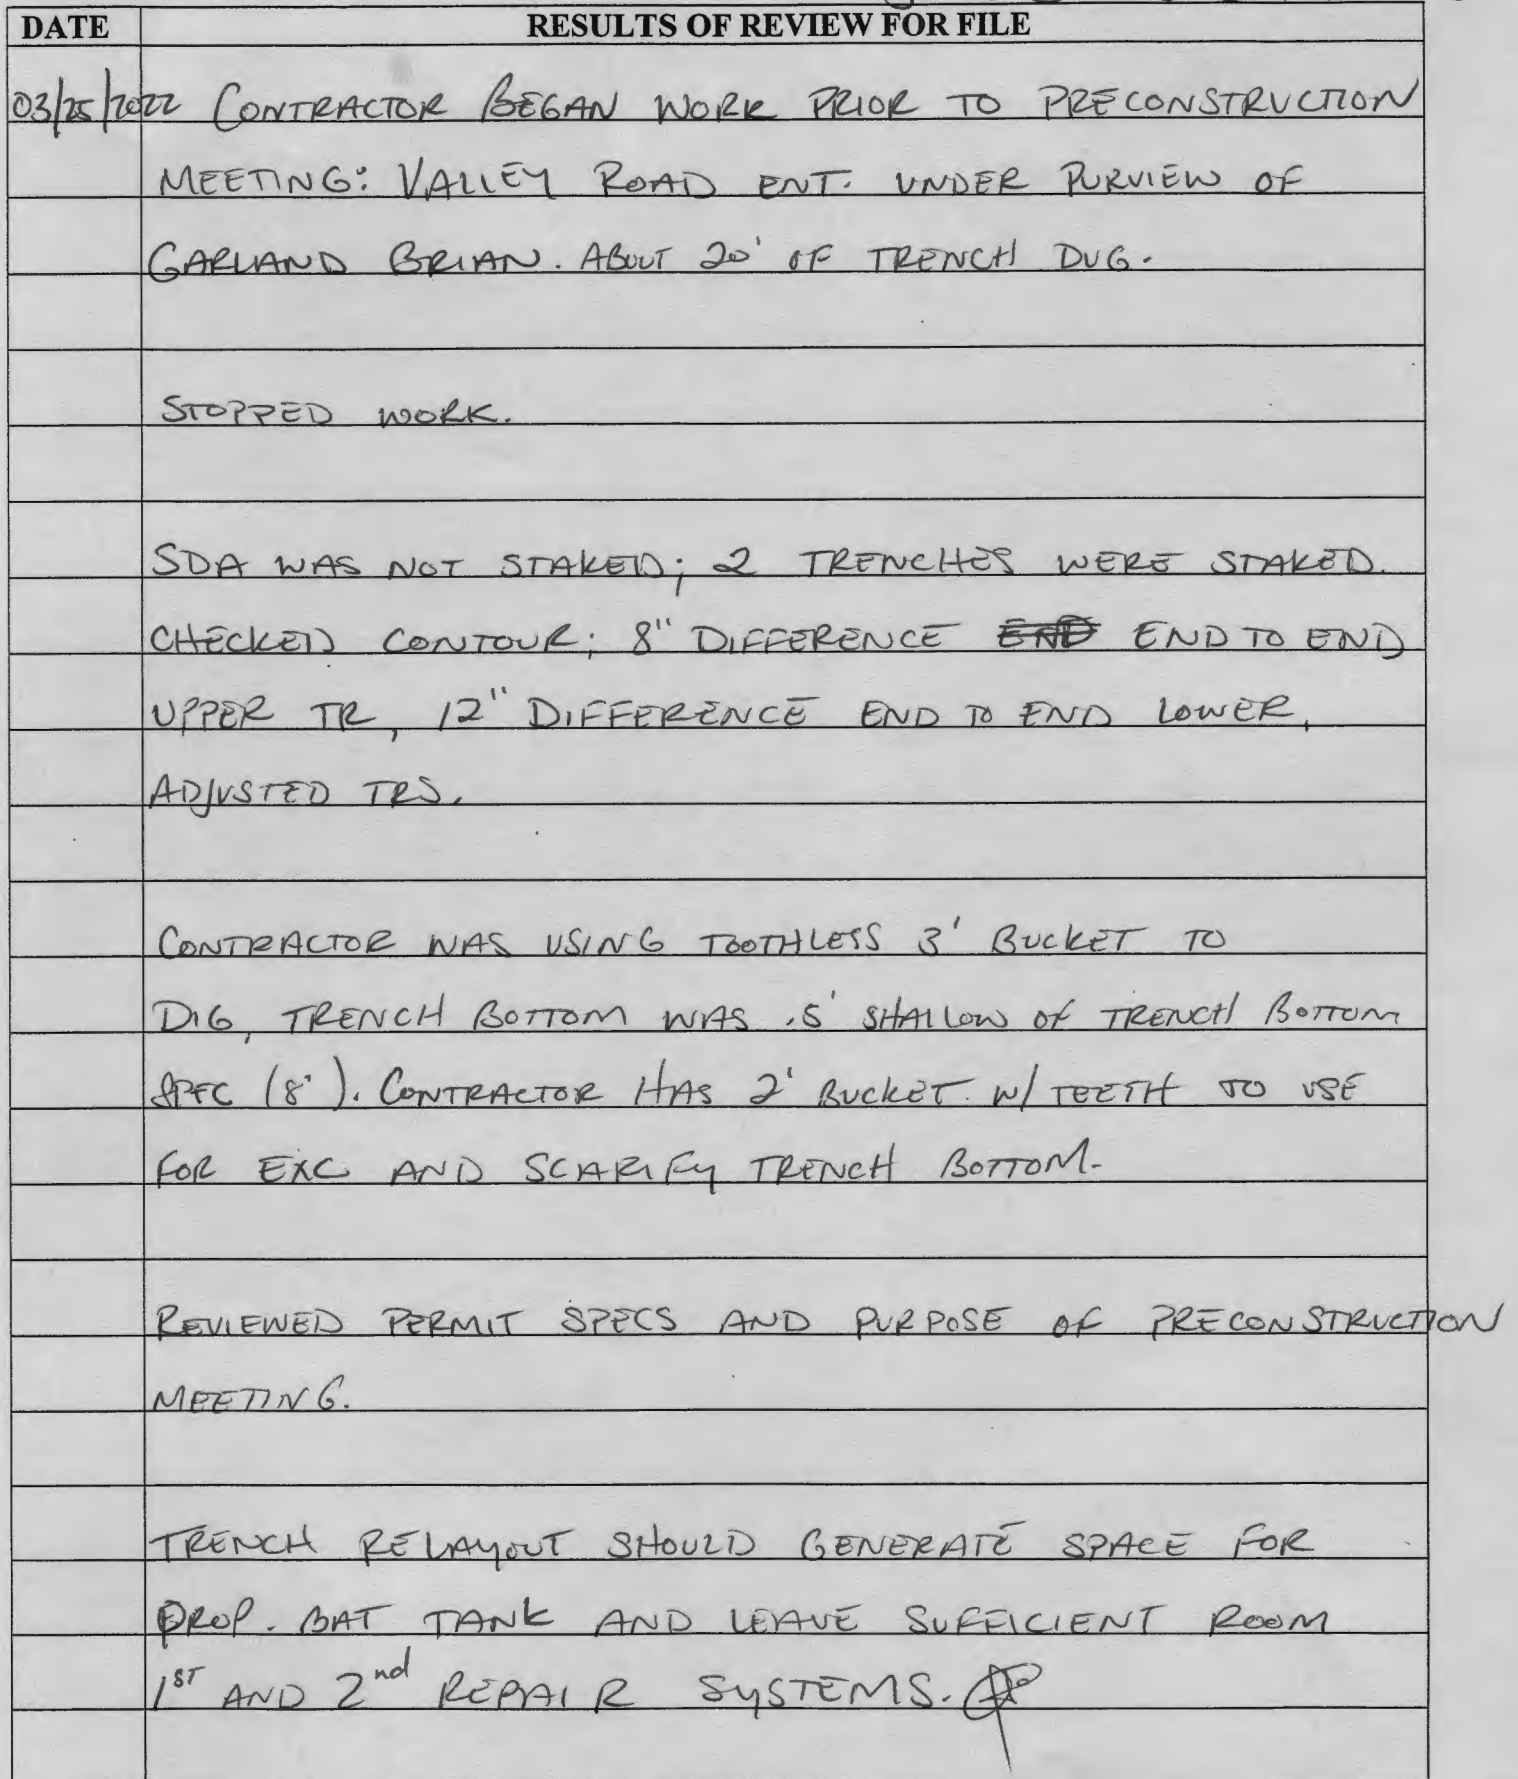 DATE RESULTS OF REVIEW FOR FILE
03/25/2022 CONTRACTOR BEGAN WORK PRIOR TO PRECONSTRUCTION
MEETING: VALLEY ROAD ENT. UNDER PURVIEW OF
GARLAND BRIAN. ABOUT 20' OF TRENCH DUG.
STOPPED WORK.
SDA WAS NOT STAKED; 2 TRENCHES WERE STAKED.
CHECKED CONTOUR; 8" DIFFERENCE END END TO END
UPPER TR, 12" DIFFERENCE END TO END LOWER,
ADJUSTED TRS.
CONTRACTOR WAS USING TOOTHLESS 3' BUCKET TO
DIG, TRENCH BOTTOM WAS .5' SHALLOW OF TRENCH BOTTOM
SPEC (8'). CONTRACTOR HAS 2' BUCKET W/ TEETH TO USE
FOR EXC AND SCARIFY TRENCH BOTTOM.
REVIEWED PERMIT SPECS AND PURPOSE OF PRECONSTRUCTION
MEETING.
TRENCH RELAYOUT SHOULD GENERATE SPACE FOR
PROP. BAT TANK AND LEAVE SUFFICIENT ROOM
1ST AND 2nd REPAIR SYSTEMS.